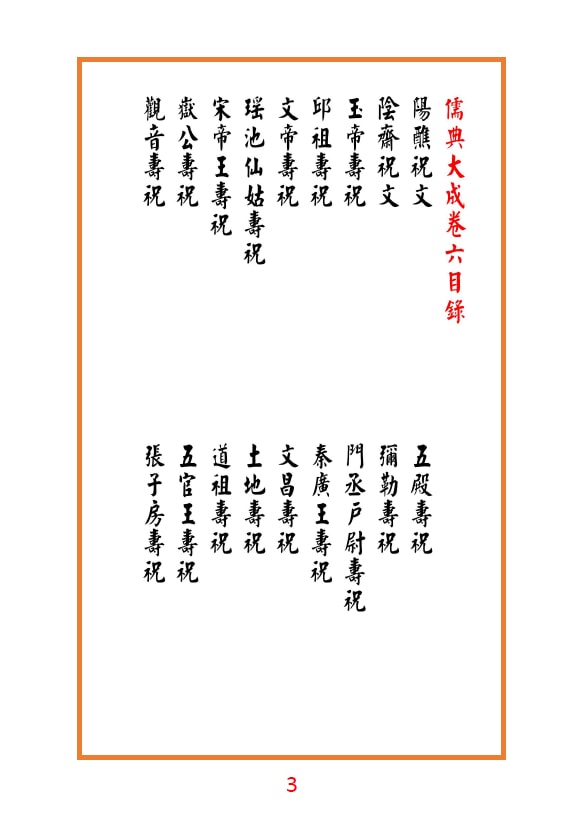 儒典大成卷六目錄
陽醮祝文
五殿壽祝
陰齋祝文
彌勒壽祝
玉帝壽祝
門丞戶尉壽祝
邱祖壽祝
秦廣王壽祝
文帝壽祝
文昌壽祝
瑶池仙姑壽祝
土地壽祝
宋帝王壽祝
道祖壽祝
嶽公壽祝
五官王壽祝
觀音壽祝
張子房壽祝
3